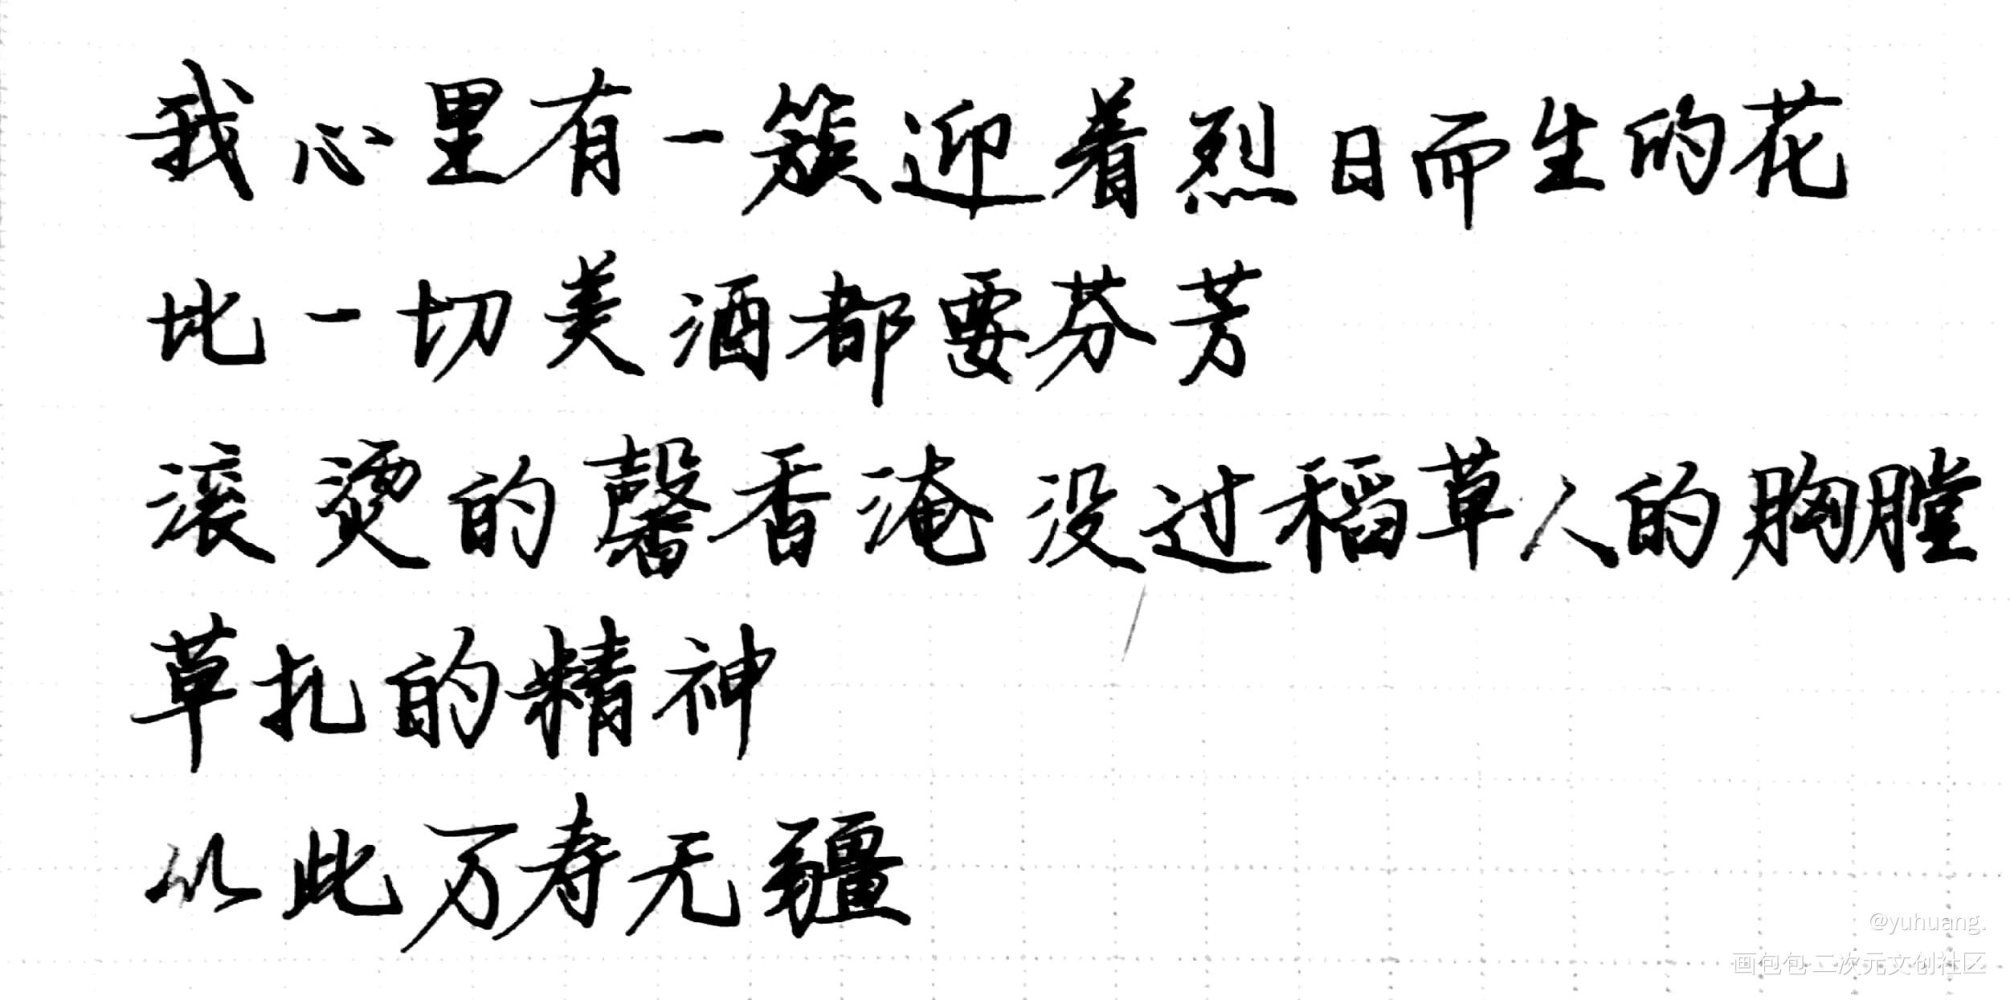 我心里有一簇迎着烈日而生的花
比一切美酒都要芬芳
滚烫的馨香淹没过稻草人的胸膛
草扎的精神
以此万寿无疆
@yuhuang.
画包包·二次元文创社区